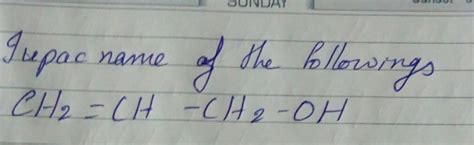 SUNDAY
Iupac name of the followings
CH2 = CH - CH2 - OH